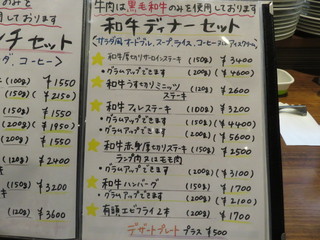 のみを
ております
牛肉は黒毛和牛のみを使用しております
ンチセット
、コーヒー)
(100g) ¥1550
(150g) (¥2150)
(100g) ¥1550
¥1550
(200g) (¥1850)
(120g)
¥2400
(150g) ¥3200
(120g) ¥3600
和牛ディナーセット
(サラダ風オードブル、スープ、ライス、コーヒー又はアイスクリーム)
和牛厚切りサーロインステーキ (150g) ¥3400
・グラムアップできます (200g) (¥4600)
和牛うす切りミニッツステーキ (200g) ¥2600
和牛フィレステーキ (100g) ¥3200
・グラムアップできます (150g) (¥4400)
(200g) (¥5600)
和牛赤身厚切りステーキ (150g) ¥2500
ランプ肉又はモモ肉
・グラムアップできます (200g) (¥3100)
和牛ハンバーグ (150g) ¥1700
・グラムアップできます (200g) (¥2100)
有頭エビフライ2本 ¥1700
デザートプレート プラス ¥500